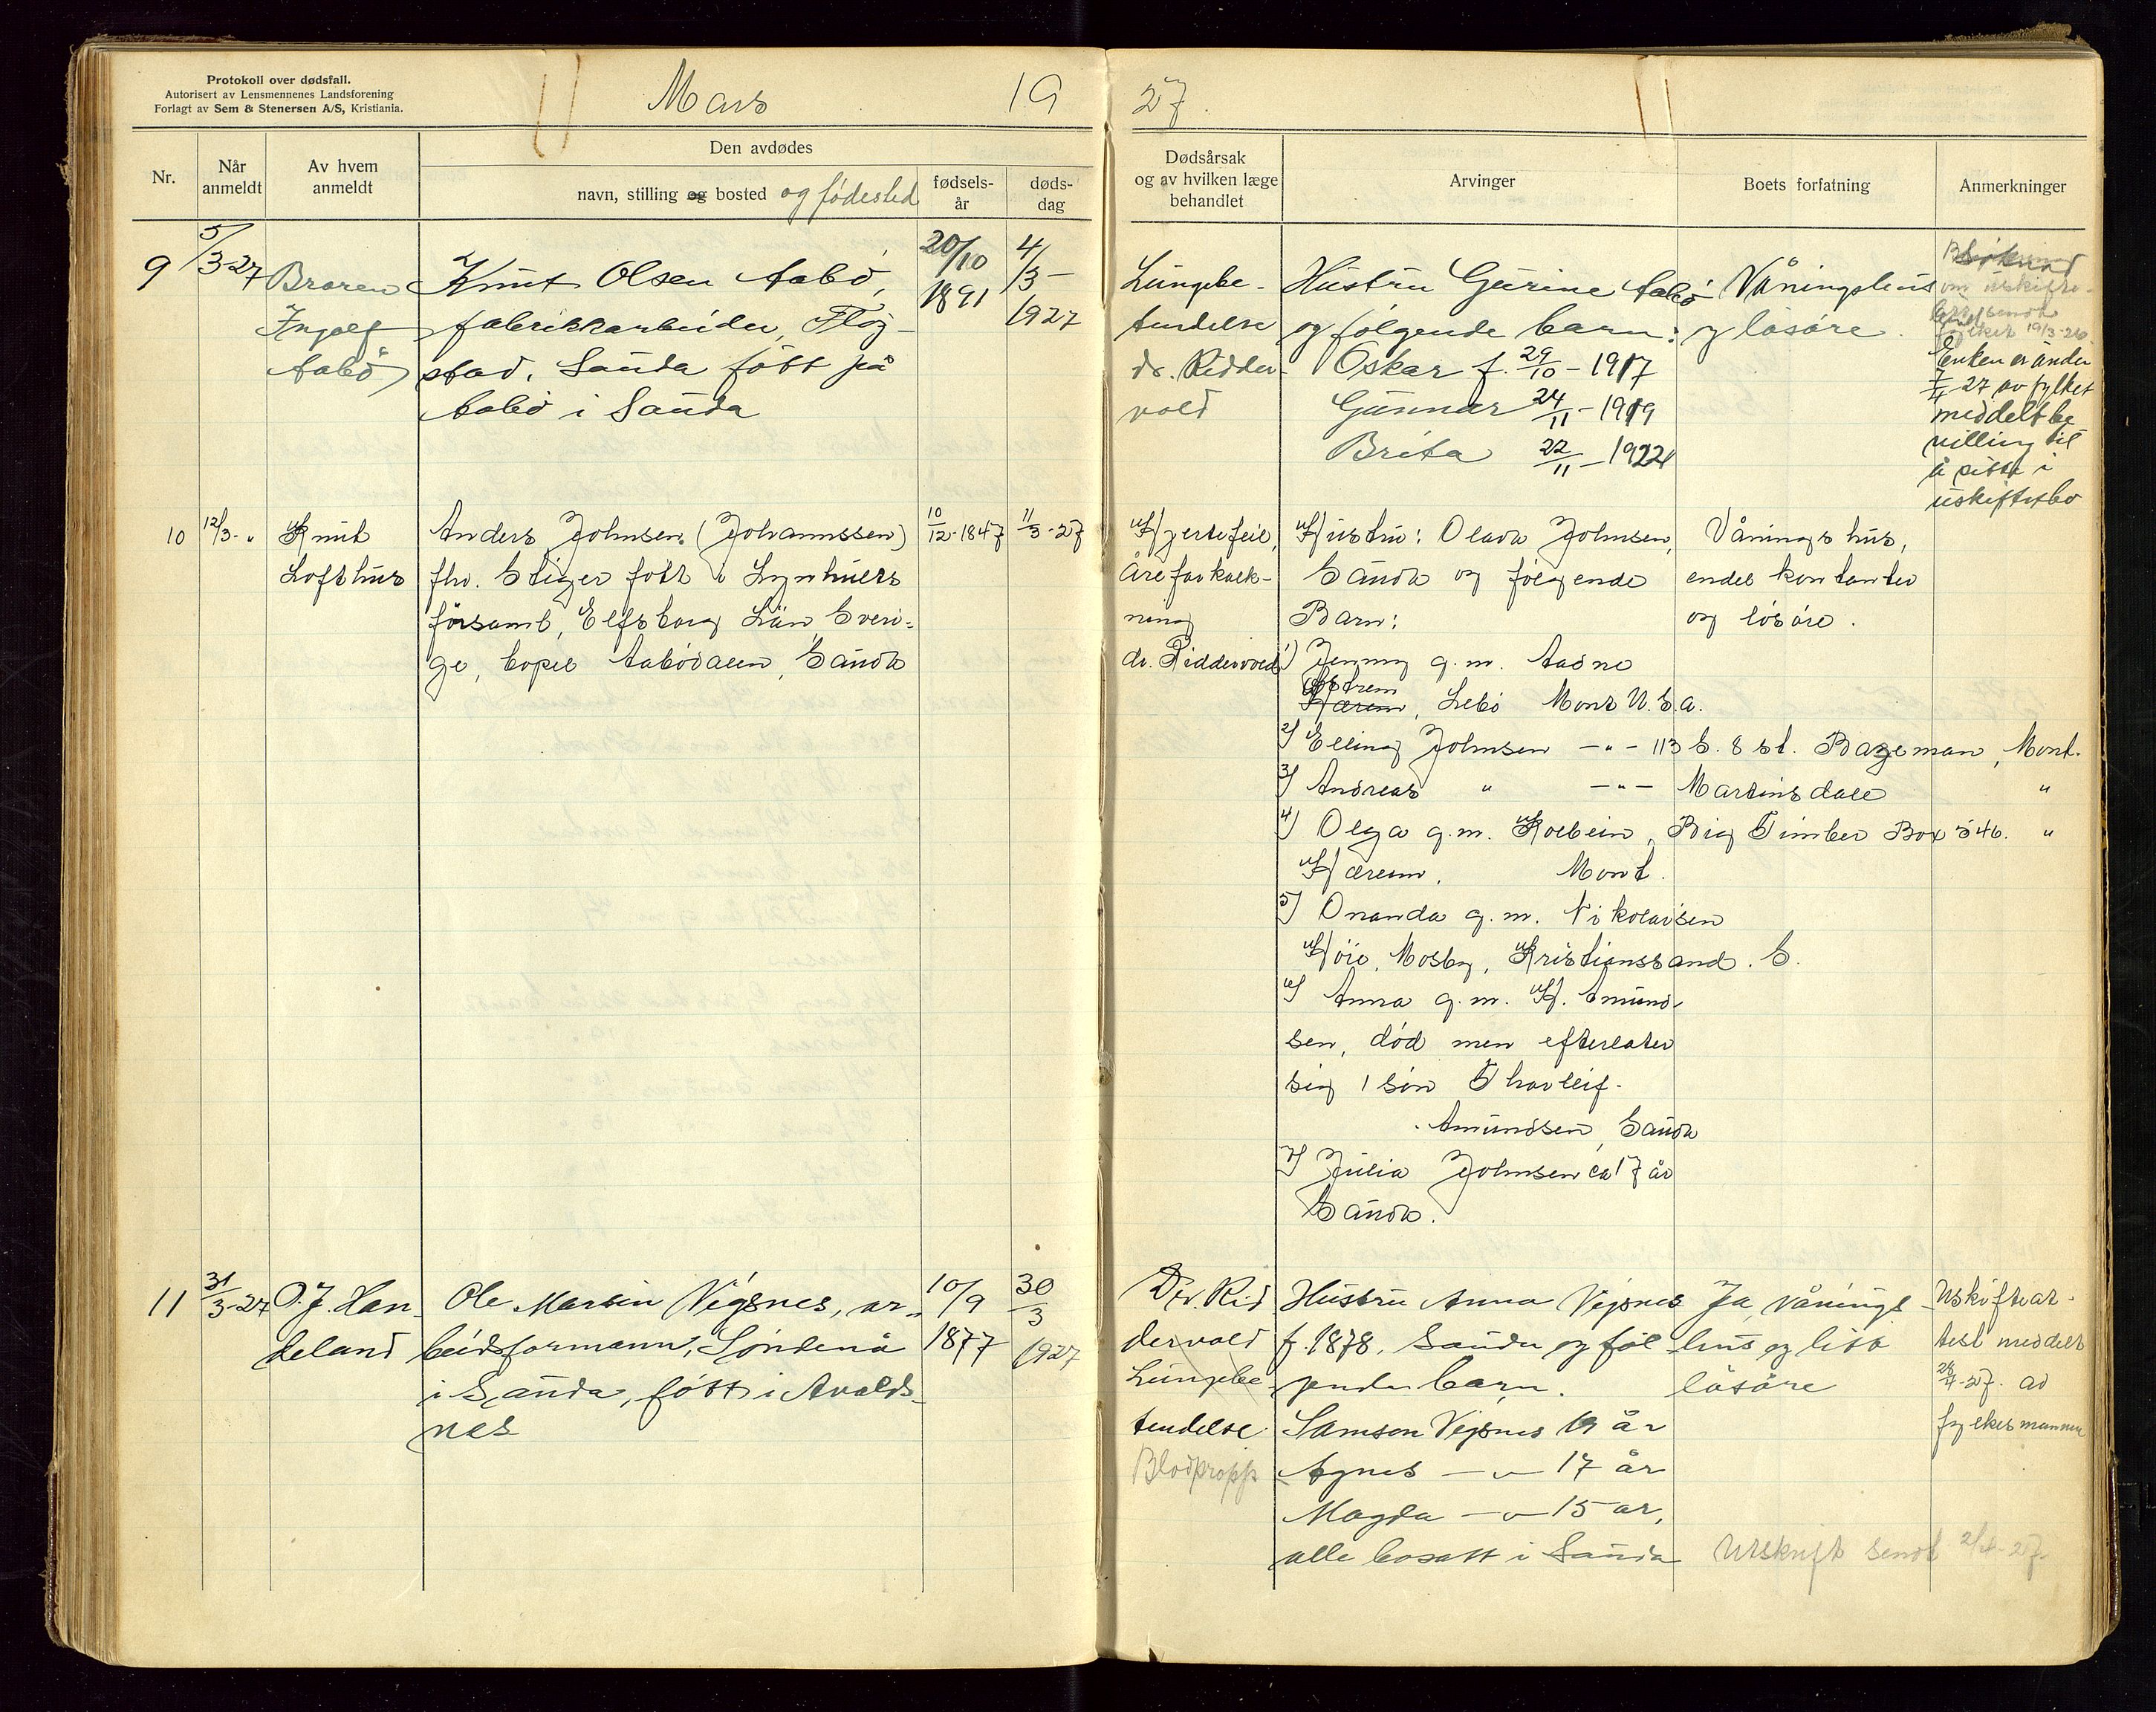 Protokoll over dødsfall.
Autorisert av Lensmennenes Landsforening
Forlagt av Sem & Stenersen A/S, Kristiania.
Mars 19 27.
Nr.
Når anmeldt
Av hvem anmeldt
Den avdødes
navn, stilling og bosted og fødested
fødselsår
dødsdag
Dødsårsak
og av hvilken læge
behandlet
Arvinger
Boets forfatning
Anmerkninger
9
5/3-27
Broren
Ingolf
Aabø
Knut Olsen Aabø,
fabrikkarbeider, Fløg-
stad, Sauda født på
Aabø i Sauda
20/10
1891
4/3-
1927
Lungebe-
tendelse
dr. Ridder-
vold
Hustru Gurine Aabø
og følgende barn:
Oskar f. 29/10 - 1917
Gunnar 24/11 - 1919
Brita 22/11 - 1922
Våningshus
og løsøre.
Enken er under
7/4 27 av fylket
meddelt be
villing til
å sitte i
uskiftet bo
10
12/3- "
Knut
Lofthus
Anders Johnsen (Johannssen)
fhv. Stiger født i
församl, Elfsborg Län Sveri-
ge, bopel Aabødalen, Sauda
10/12-1847
11/3-27
Hjertefeil,
åreforkalk-
ning
dr. Riddervold
Hustru: Olava Johnsen,
Sauda og følgende
Barn:
1) Jenny g.m. Aadne
Østrem
Hærem, Lebo Mont U.S.A.
2) Elling Johnsen -"- 113 S. 8 st. Bozeman, Mont.
3) Andreas " -"- Martinsdale "
4) Olga g.m. Kolbein, Big Timber Box 546. "
Hærem, Mont.
5) Onanda g.m. Nikolaisen
Høie, Mosby, Kristianssand. S.
6) Anna g.m. H. Amund-
sen, død men efterlater
sig 1 søn Thorleif
Amundsen, Sauda
7) Julia Johnsen ca 17 år
Sauda.
Våningshus,
endel kontanter
og løsøre.
11
31/3-27
O.J. Han-
deland
Ole Martin Vigsnes, ar-
beidsformann, Søndenå
i Sauda, født i Avalds-
nes
10/9
1877
30/3
1927
Dr. Rid
dervold
Lungebe
tendelse
Blodpropp
Hustru Anna Vigsnes
f. 1878, Sauda og føl
gende barn.
Samson Vigsnes 19 år
Agnes - " - 17 år
Magda - " - 15 år,
alle bosatt i Sauda
Ja, vånings
hus og litt
løsøre
Uskifteat-
test meddelt
26/4-27. av
fylkesmannen
Utskrift sendt 2/4-27.